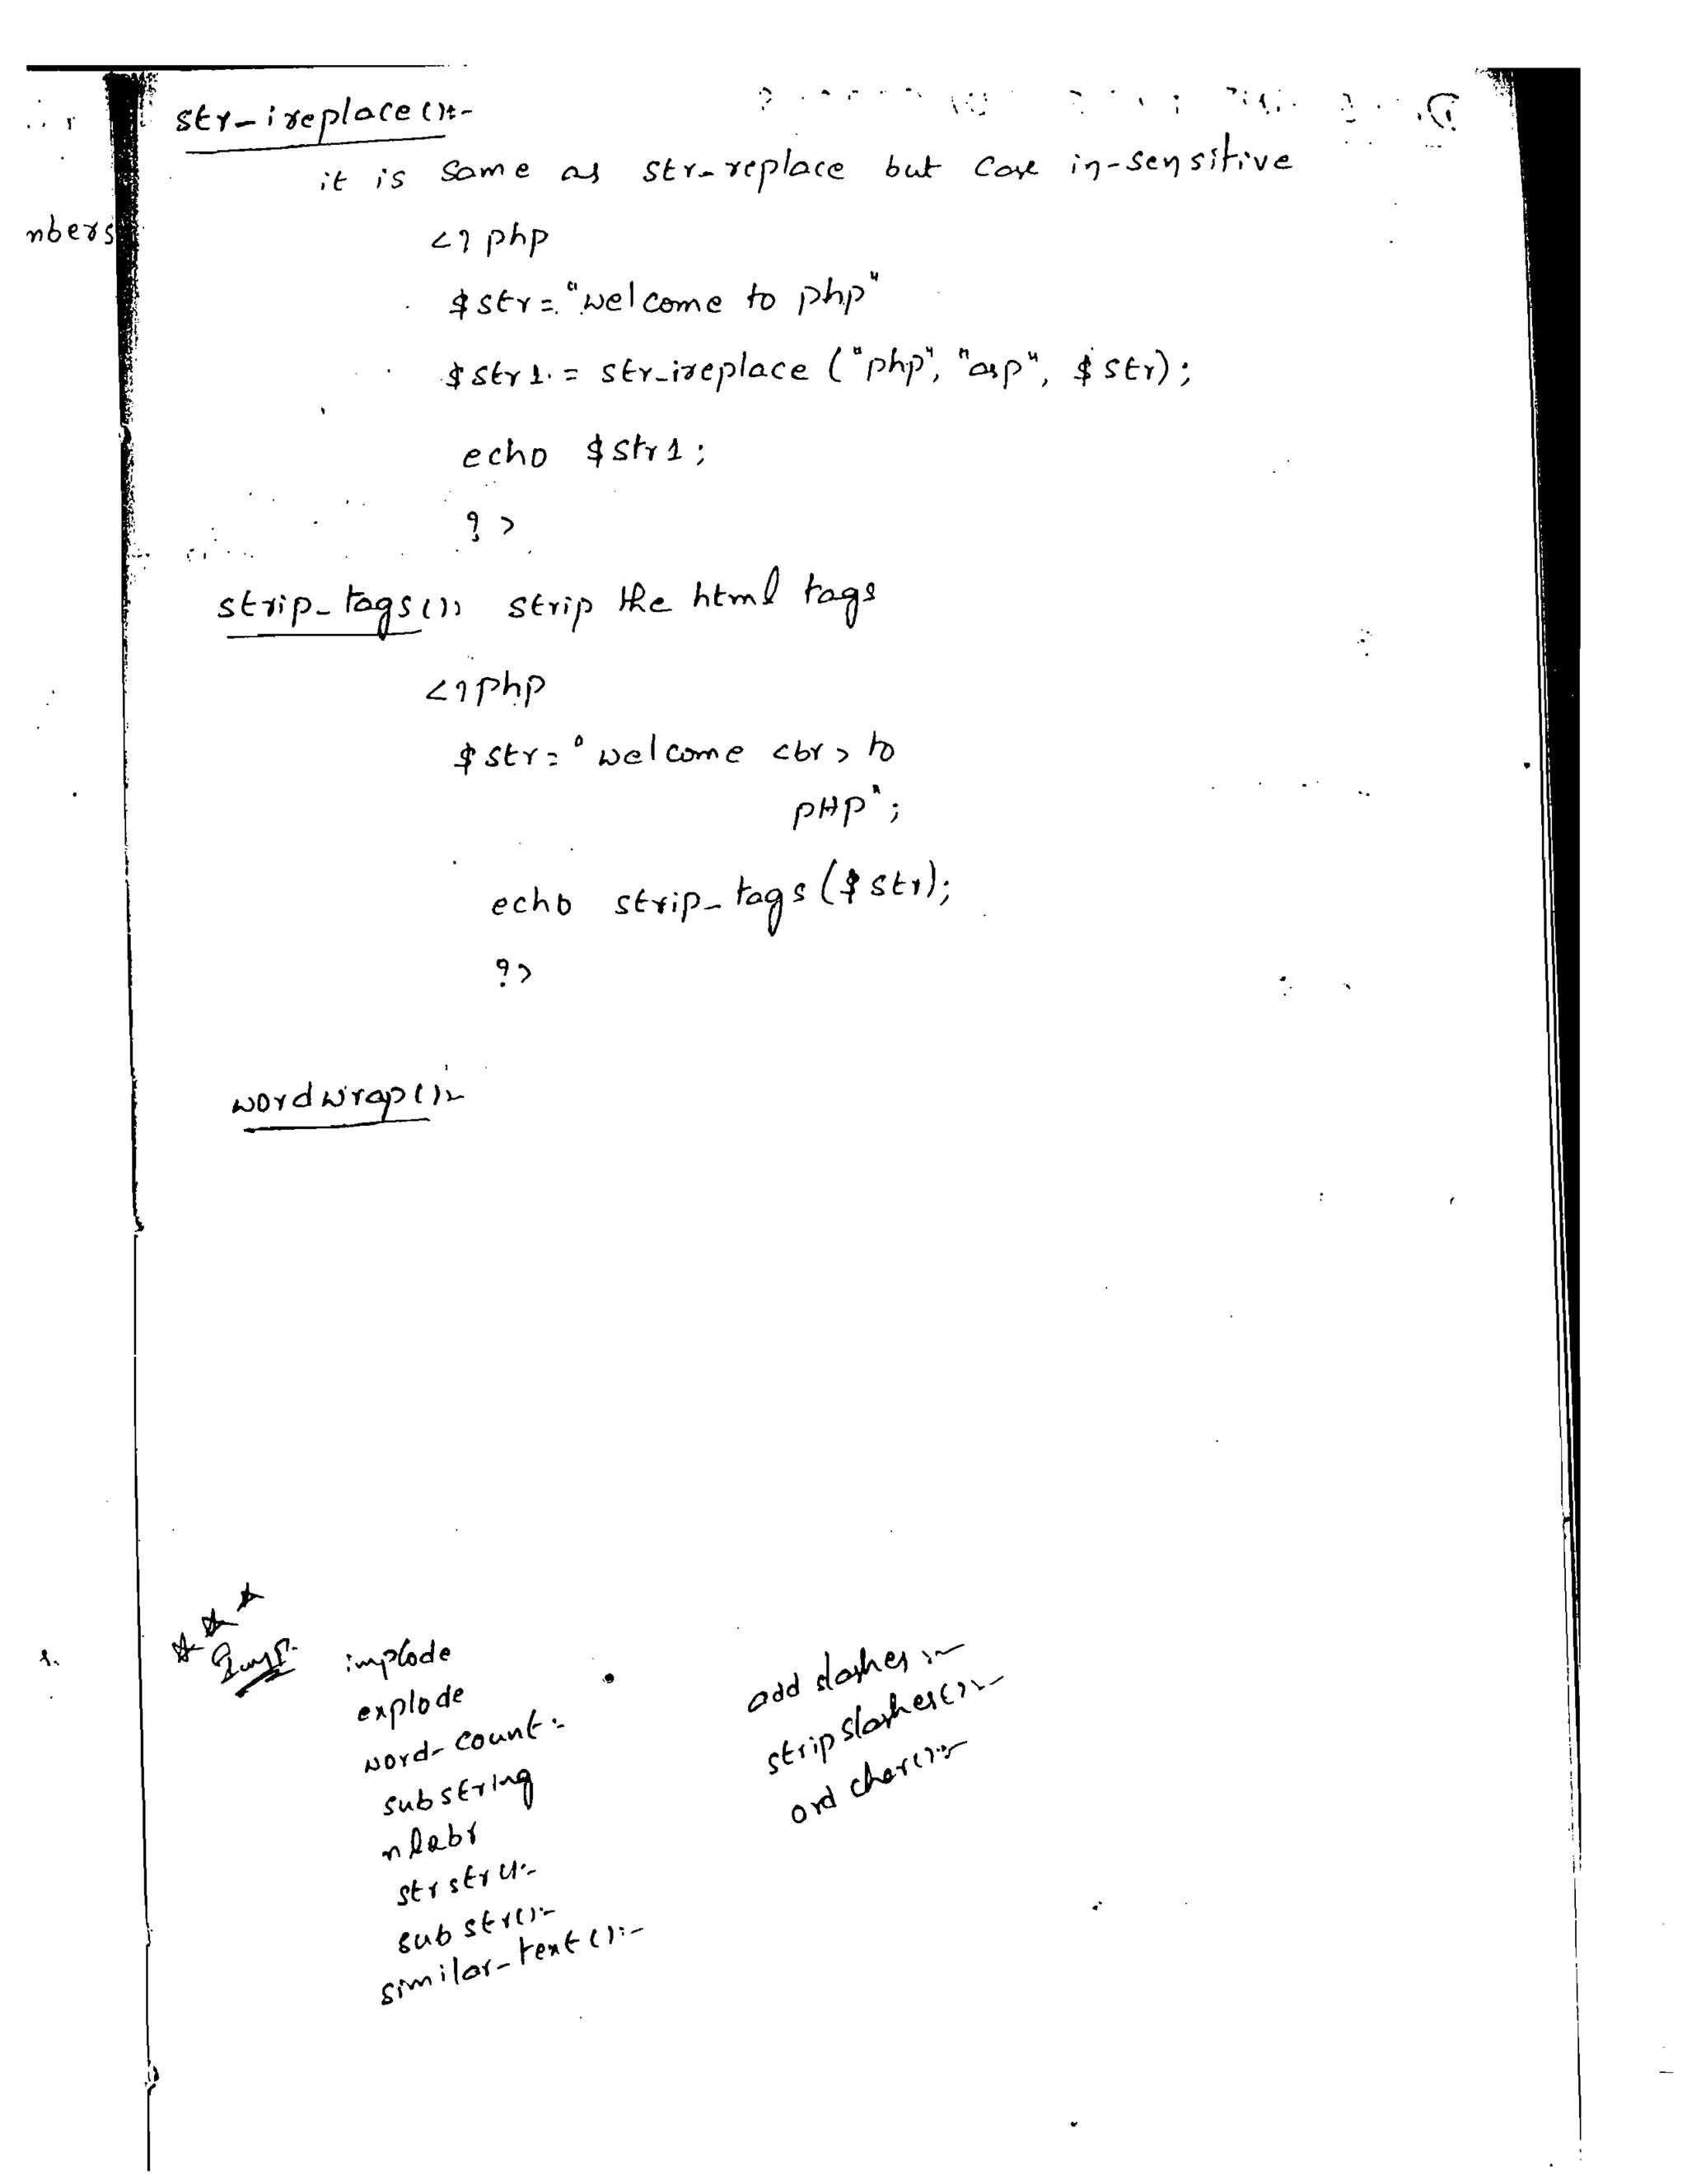 str_ireplace():-
it is same as str_replace but case in-sensitive
nbers
<?php
$str="welcome to php"
$str1 = str_ireplace ("php", "asp", $str);
echo $str1;
?>
strip_tags(): strip the html tags
<?php
$str="welcome <br> to
PHP";
echo strip_tags($str);
?>
wordwrap():-
Imp:-
implode
explode
word-count:-
substring
nl2br
strstr():-
substr():-
similar-text():-
add slashes:-
strip slashes():-
ord char():-